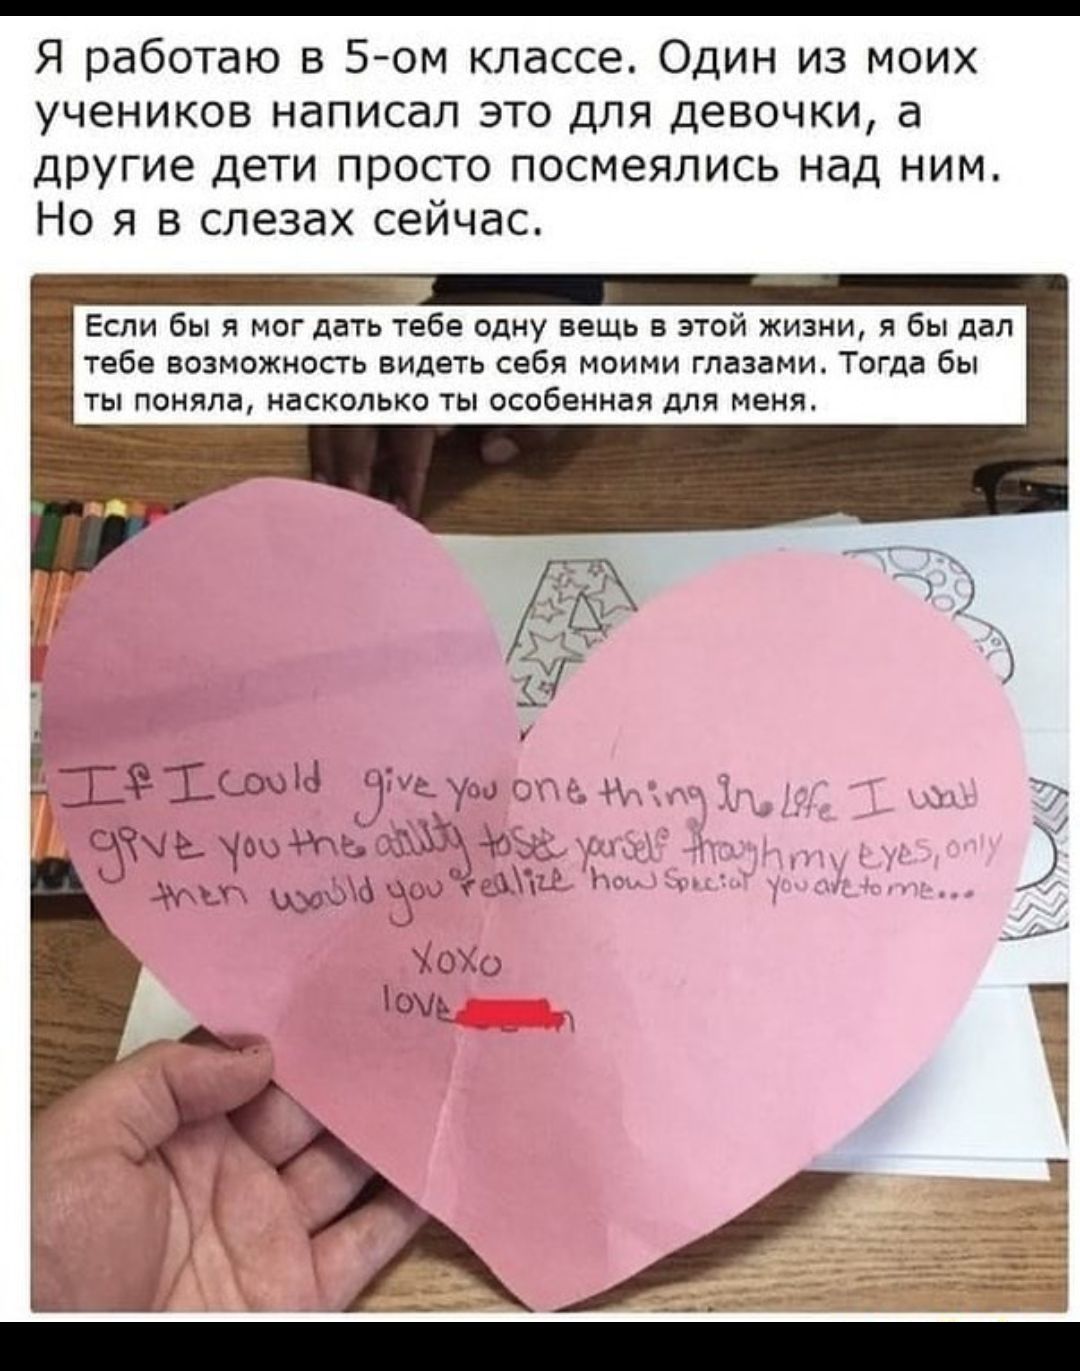 Я работаю в 5-ом классе. Один из моих
учеников написал это для девочки, а
другие дети просто посмеялись над ним.
Но я в слезах сейчас.
Если бы я мог дать тебе одну вещь в этой жизни, я бы дал
тебе возможность видеть себя моими глазами. Тогда бы
ты поняла, насколько ты особенная для меня.
If I could give you one thing in life I
give you the ability to see yourself through my eyes, only
then would you realize how special you are to me...
XoXo
love